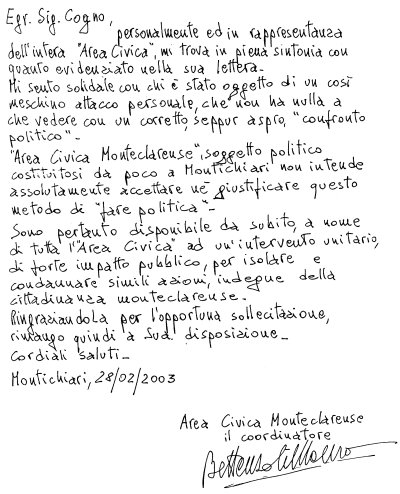 Egr. Sig. Cogno,
personalmente ed in rappresentanza
dell'intera "Area Civica", mi trova in piena sintonia con
quanto evidenziato nella sua lettera.
Mi sento solidale con chi è stato oggetto di un così
meschino attacco personale, che non ha nulla a
che vedere con un corretto, seppur aspro, "confronto
politico"-
"Area Civica Monteclarense", soggetto politico
costituitosi da poco a Montichiari non intende
assolutamente accettare nè giustificare questo
metodo di "fare politica"-
Sono pertanto disponibile da subito, a nome
di tutta l'"Area Civica" ad un'intervento unitario,
di forte impatto pubblico, per isolare e
condannare simili azioni, indegne della
cittadinanza monteclarense.
RingraziandoLa per l'opportuna sollecitazione,
rimango quindi a Sua disposizione-
Cordiali saluti-
Montichiari, 28/02/2003
Area Civica Monteclarense
il coordinatore